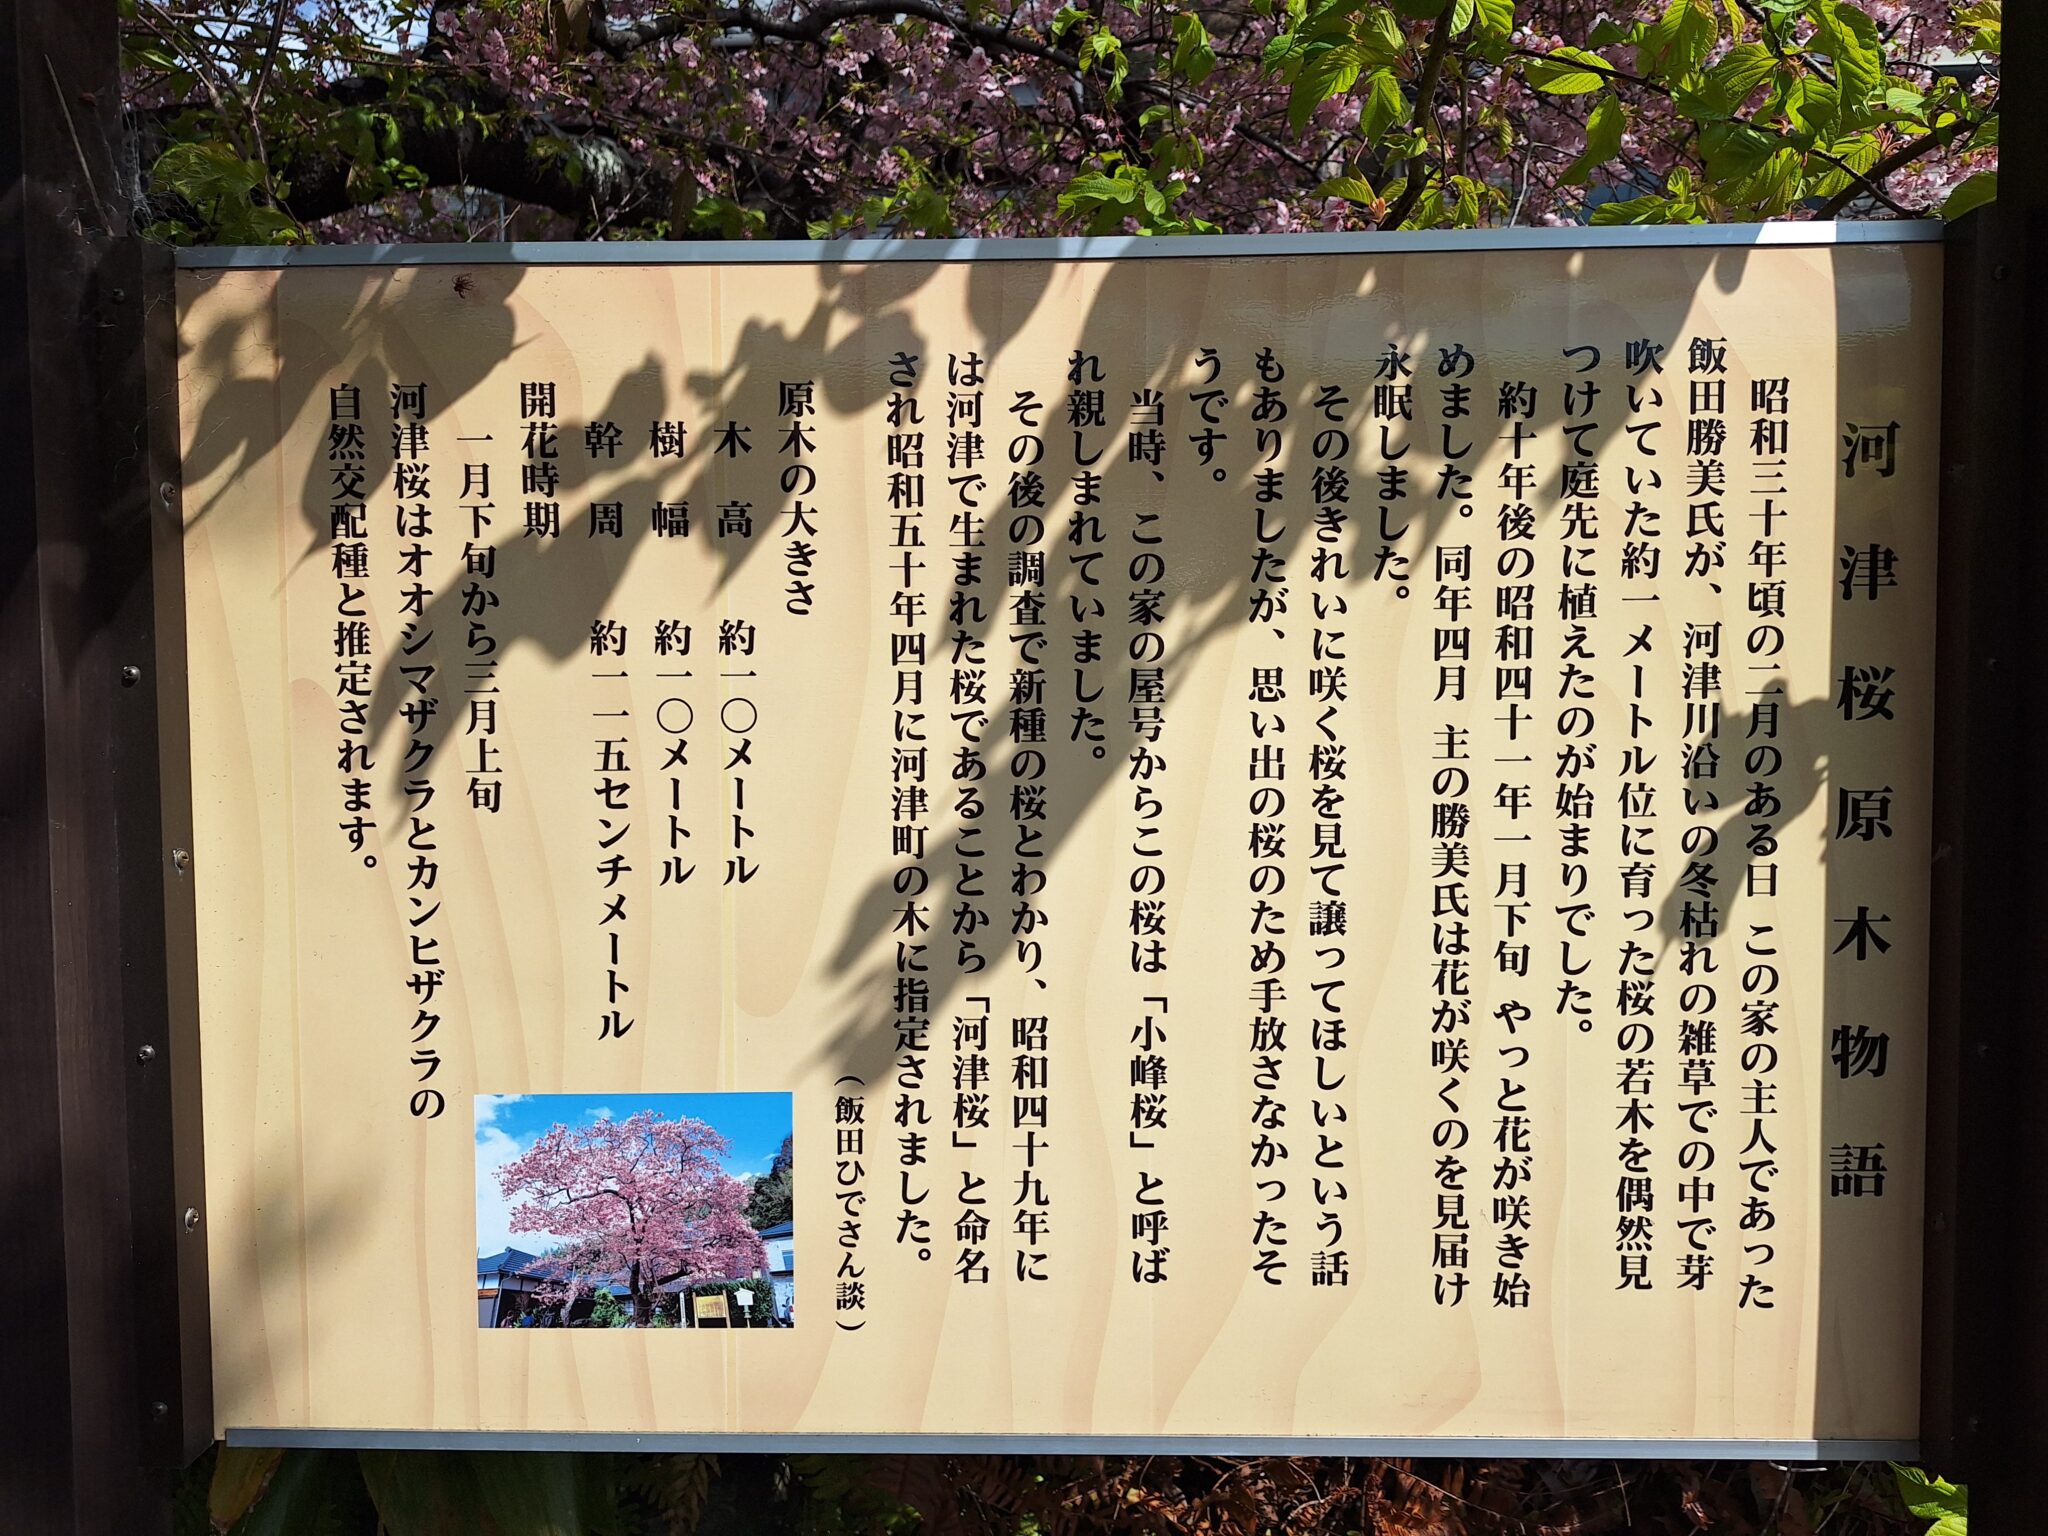 河津桜原木物語
昭和三十年頃の二月のある日 この家の主人であった
飯田勝美氏が、河津川沿いの冬枯れの雑草での中で芽
吹いていた約一メートル位に育った桜の若木を偶然見
つけて庭先に植えたのが始まりでした。
約十年後の昭和四十一年一月下旬 やっと花が咲き始
めました。同年四月 主の勝美氏は花が咲くのを見届け
永眠しました。
その後きれいに咲く桜を見て譲ってほしいという話
もありましたが、思い出の桜のため手放さなかったそ
うです。
当時、この家の屋号からこの桜は「小峰桜」と呼ば
れ親しまれていました。
その後の調査で新種の桜とわかり、昭和四十九年に
は河津で生まれた桜であることから「河津桜」と命名
され昭和五十年四月に河津町の木に指定されました。
（飯田ひでさん談）
原木の大きさ
木高 約一〇メートル
樹幅 約一〇メートル
幹周 約一一五センチメートル
開花時期
一月下旬から三月上旬
河津桜はオオシマザクラとカンヒザクラの
自然交配種と推定されます。